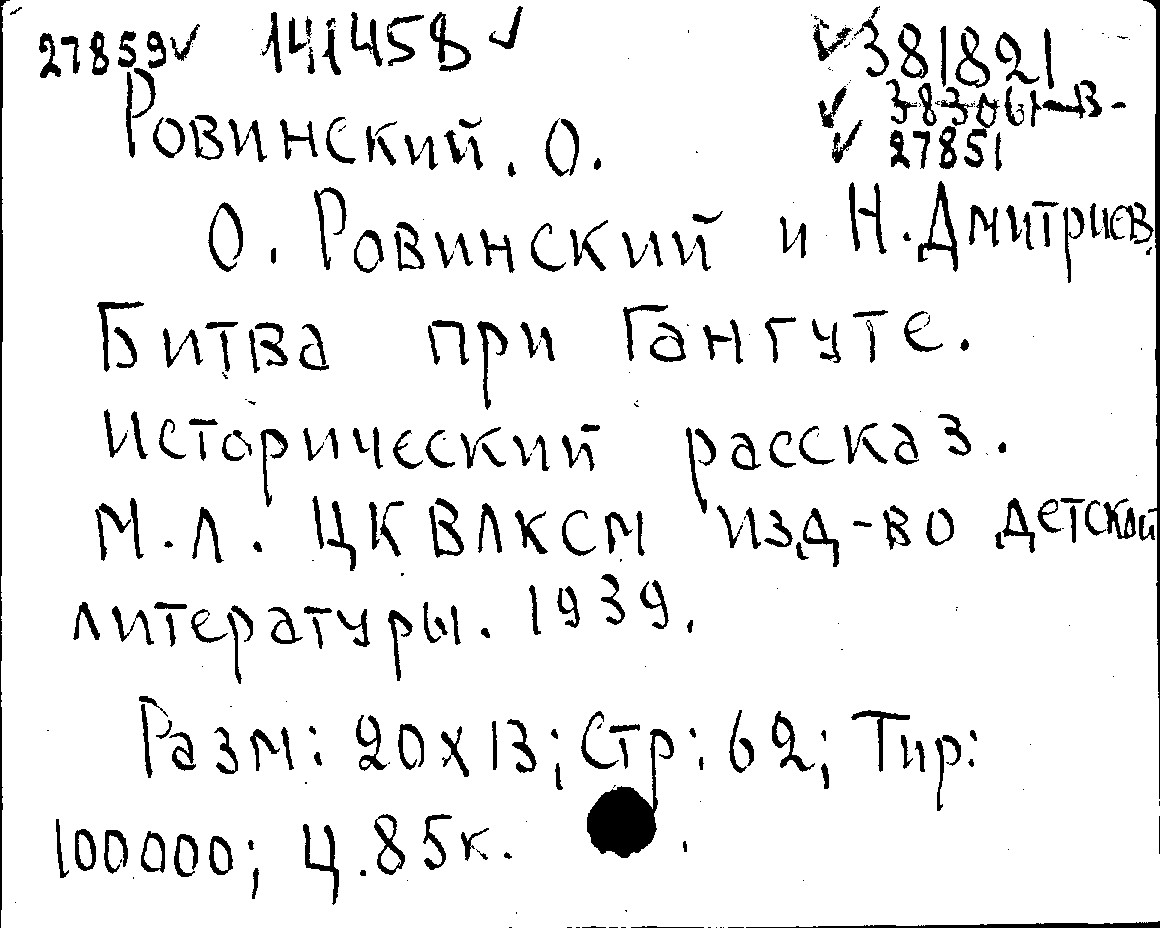 27859✓ 141458 ✓ ✓ 381821
✓ 383061-В-
✓ 27851
Ровинский. О.
О. Ровинский и Н. Дмитриев.
Битва при Гангуте.
Исторический рассказ.
М.Л. ЦК ВЛКСМ изд-во детской
литературы. 1939.
Разм: 20х13; Стр: 62; Тир:
100000; Ц. 85к.